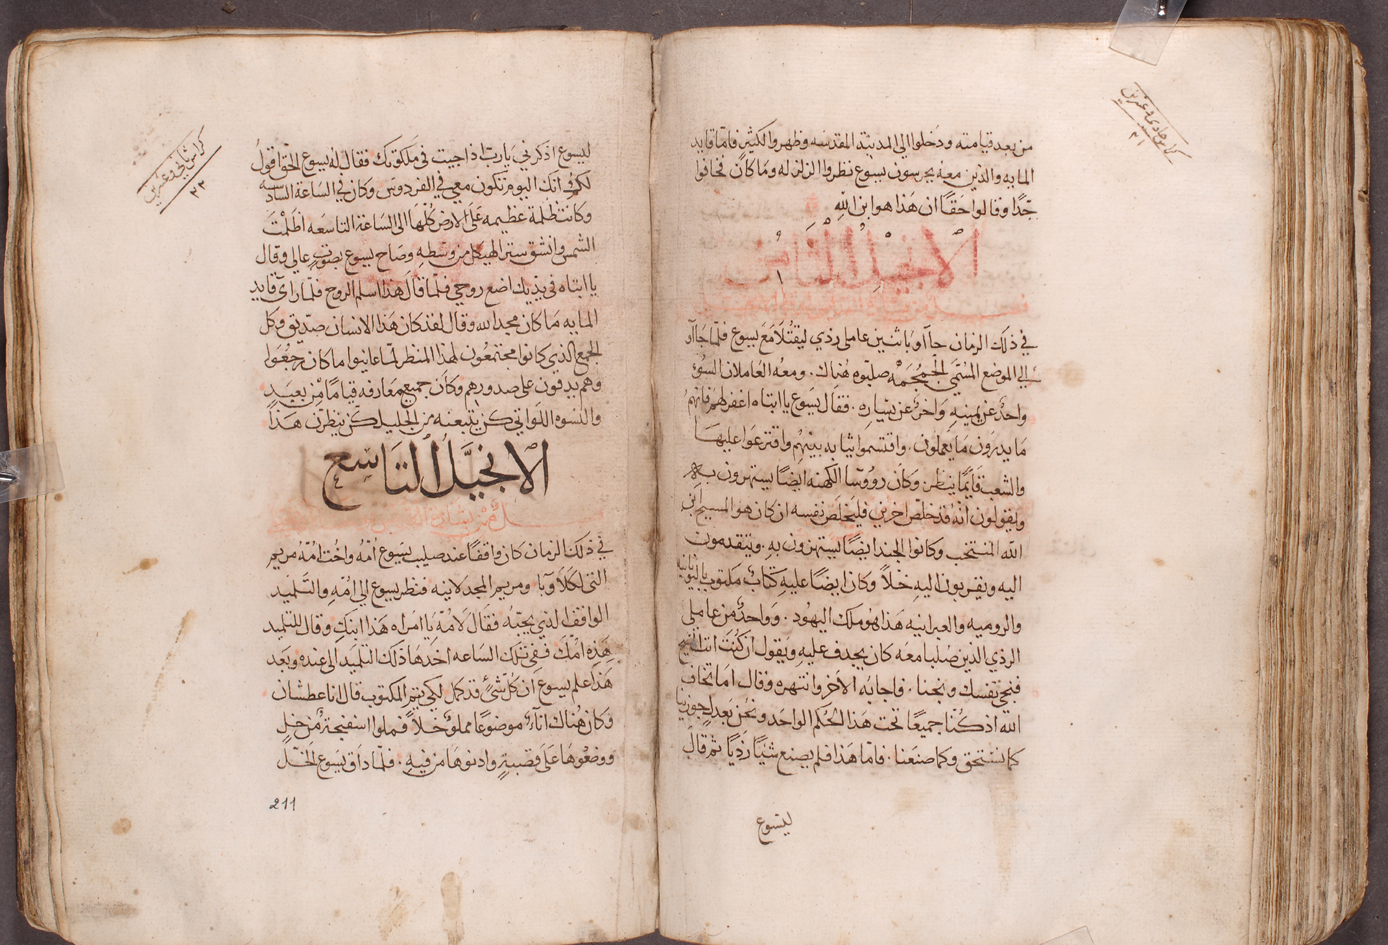 كراس حادي وعشرين
٢١
من بعد قيامته ودخلوا الى المدينة المقدسه وظهروا لكثير فاما قايد
المايه والذين معه يحرسون يسوع نظروا الزلزله وما كان فخافوا
جدًا وقالوا حقًا ان هذا هو ابن الله
الانجيل الثامن
في ذلك الزمان جاآوا باثنين عاملي ردي ليقتلا مع يسوع فلما جاآوا
الى الموضع المسمى الجمجمه صلبوه هناك. ومعه العاملان السوء
واحدٌ عن يمينهِ واخرٌ عن يساره. فقال يسوع يا ابتاه اغفر لهم فانهم
ما يدرون ما يعملون. واقتسموا ثيابه بينهم واقترعوا عليها
والشعب قائمًا ينظر. وكان روُوسا الكهنه ايضًا يستهزون به
ويقولون انه قد خلص اخرين فليخلص نفسه ان كان هو المسيح ابن
الله المنتخب وكانوا الجند ايضًا يستهزون به. ويتقدمون
اليه ويقربون اليهِ خلاً وكان ايضًا عليهِ كتابٌ مكتوب باليونانيه
والروميه والعبرانيه هذا هو ملك اليهود. وواحدٌ من عاملي
الردي الذين صلبا معه كان يجدف عليهِ ويقول ان كنت انت المسيح
فنجي نفسك ونجنا. فاجابه الاخر وانتهره وقال اما تخاف
الله اذ كنا جميعًا تحت هذا الحكم الواحد ونحن بعدلٍ جوزينا
كما نستحق وكما صنعنا. فاما هذا فلم يصنع شيًا رديًا ثم قال
ليسوع
كراس ثاني وعشرين
٢٢
ليسوع اذكرني يا رب اذا جيت في ملكوتك فقال له يسوع الحق اقول
لك انك اليوم تكون معي في الفردوس وكان في الساعة السادسه
وكانت ظلمة عظيمه على الارض كلها الى الساعة التاسعه اظلمت
الشمس وانشق ستر الهيكل من وسطهِ وصاح يسوع بصوتٍ عالي وقال
يا ابتاه في يديك اضع روحي فلما قال هذا اسلم الروح فلما راى قايد
المايه ما كان مجد الله وقال لقد كان هذا الانسان صديق وكل
الجمع الذي كانوا مجتمعون لهذا المنظر لما عاينوا ما كان رجعوا
وهم يدقون على صدورهم وكان جميع معارفه قيامًا من بعيد
والنسوه اللواتي كن يتبعنه من الجليل كن ينظرن هذا
الانجيل التاسع
في ذلك الزمان كان واقفًا عند صليب يسوع امُه واخت امُه مريم
التي لكلاوبا ومريم المجدلانيه فنظر يسوع الى امهِ والتلميد
الواقف الذي يحبه فقال لامه يا امراه هذا ابنكِ وقال للتلميد
هذه امك فمن تلك الساعه اخدها ذلك التلميد الى عنده وبعد
هذا علم يسوع ان كل شيءٍ قد كمل لكي يتم المكتوب قال انا عطشان
وكان هناك انآءٌ موضوعًا مملوءٌ خلاً فملوا اسفنجة من خلٍ
ووضعوها على قصبةٍ وادنوها من فيهِ. فلما داق يسوع الخل
211